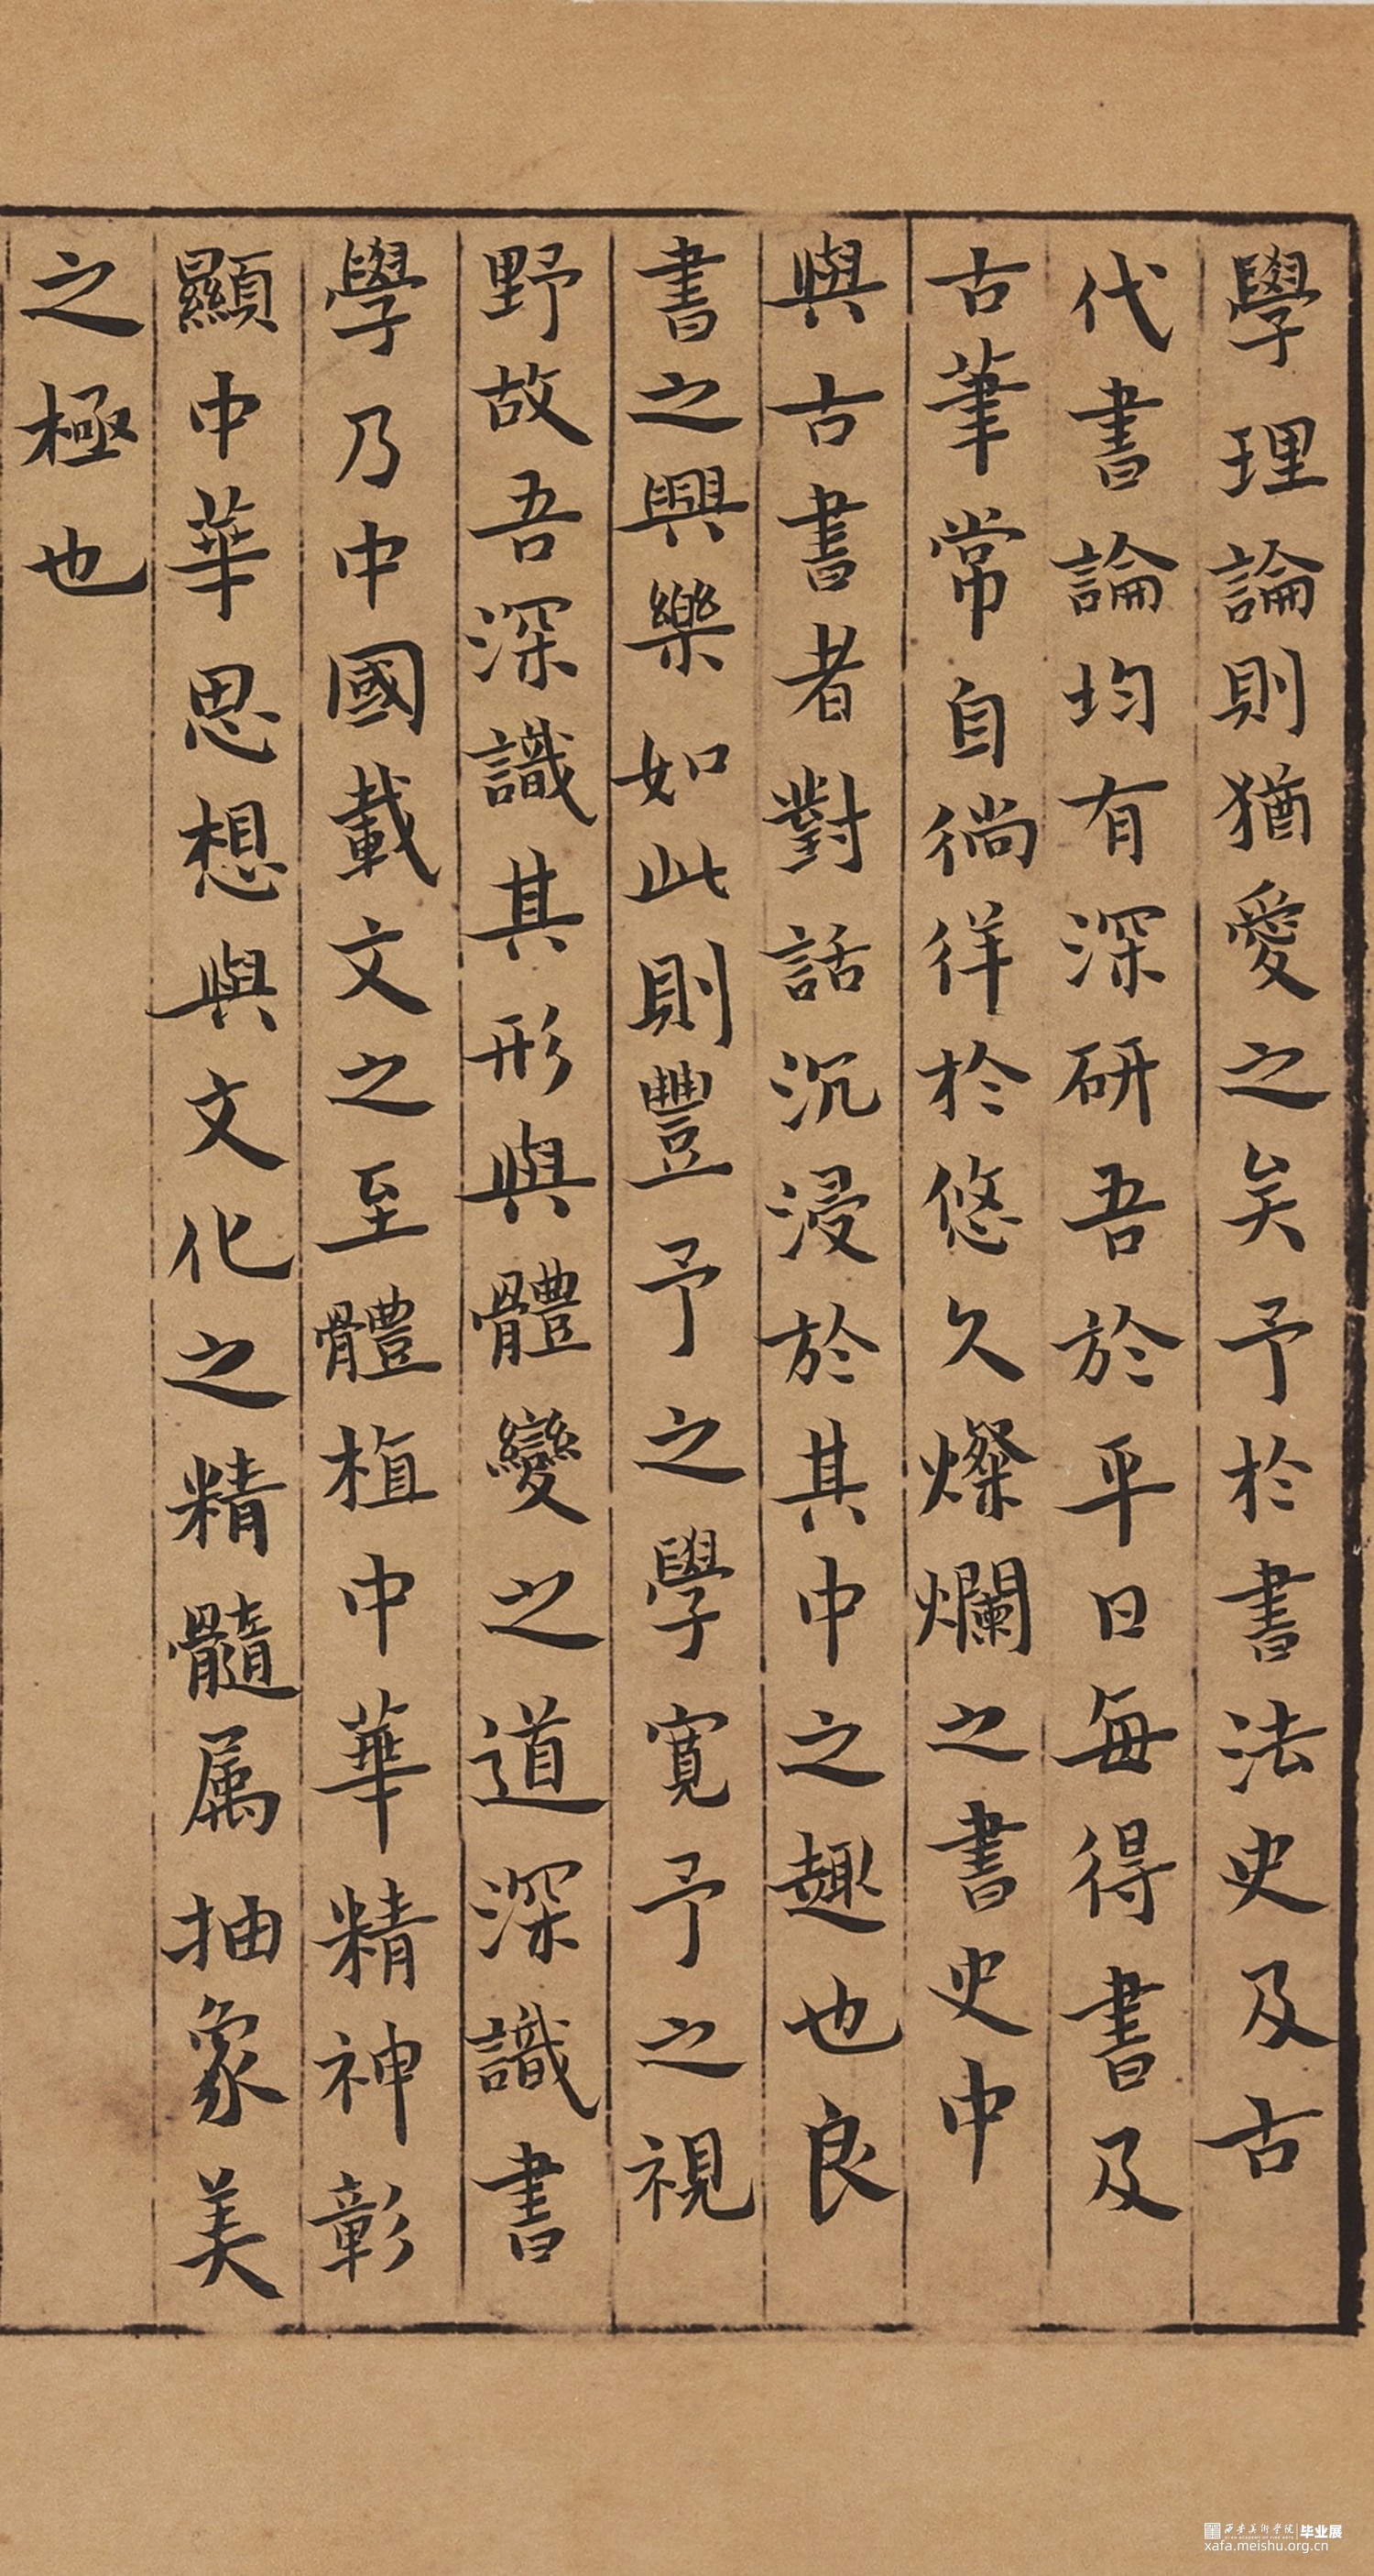 學理論則猶愛之矣予於書法史及古
代書論均有深研吾於平日每得書及
古筆常自徜徉於悠久燦爛之書史中
與古書者對話沉浸於其中之趣也良
書之興樂如此則豐予之學寬予之視
野故吾深識其形與體變之道深識書
學乃中國載文之至體植中華精神彰
顯中華思想與文化之精髓属抽象美
之極也
西安美術學院 毕业展
xafa.meishu.org.cn